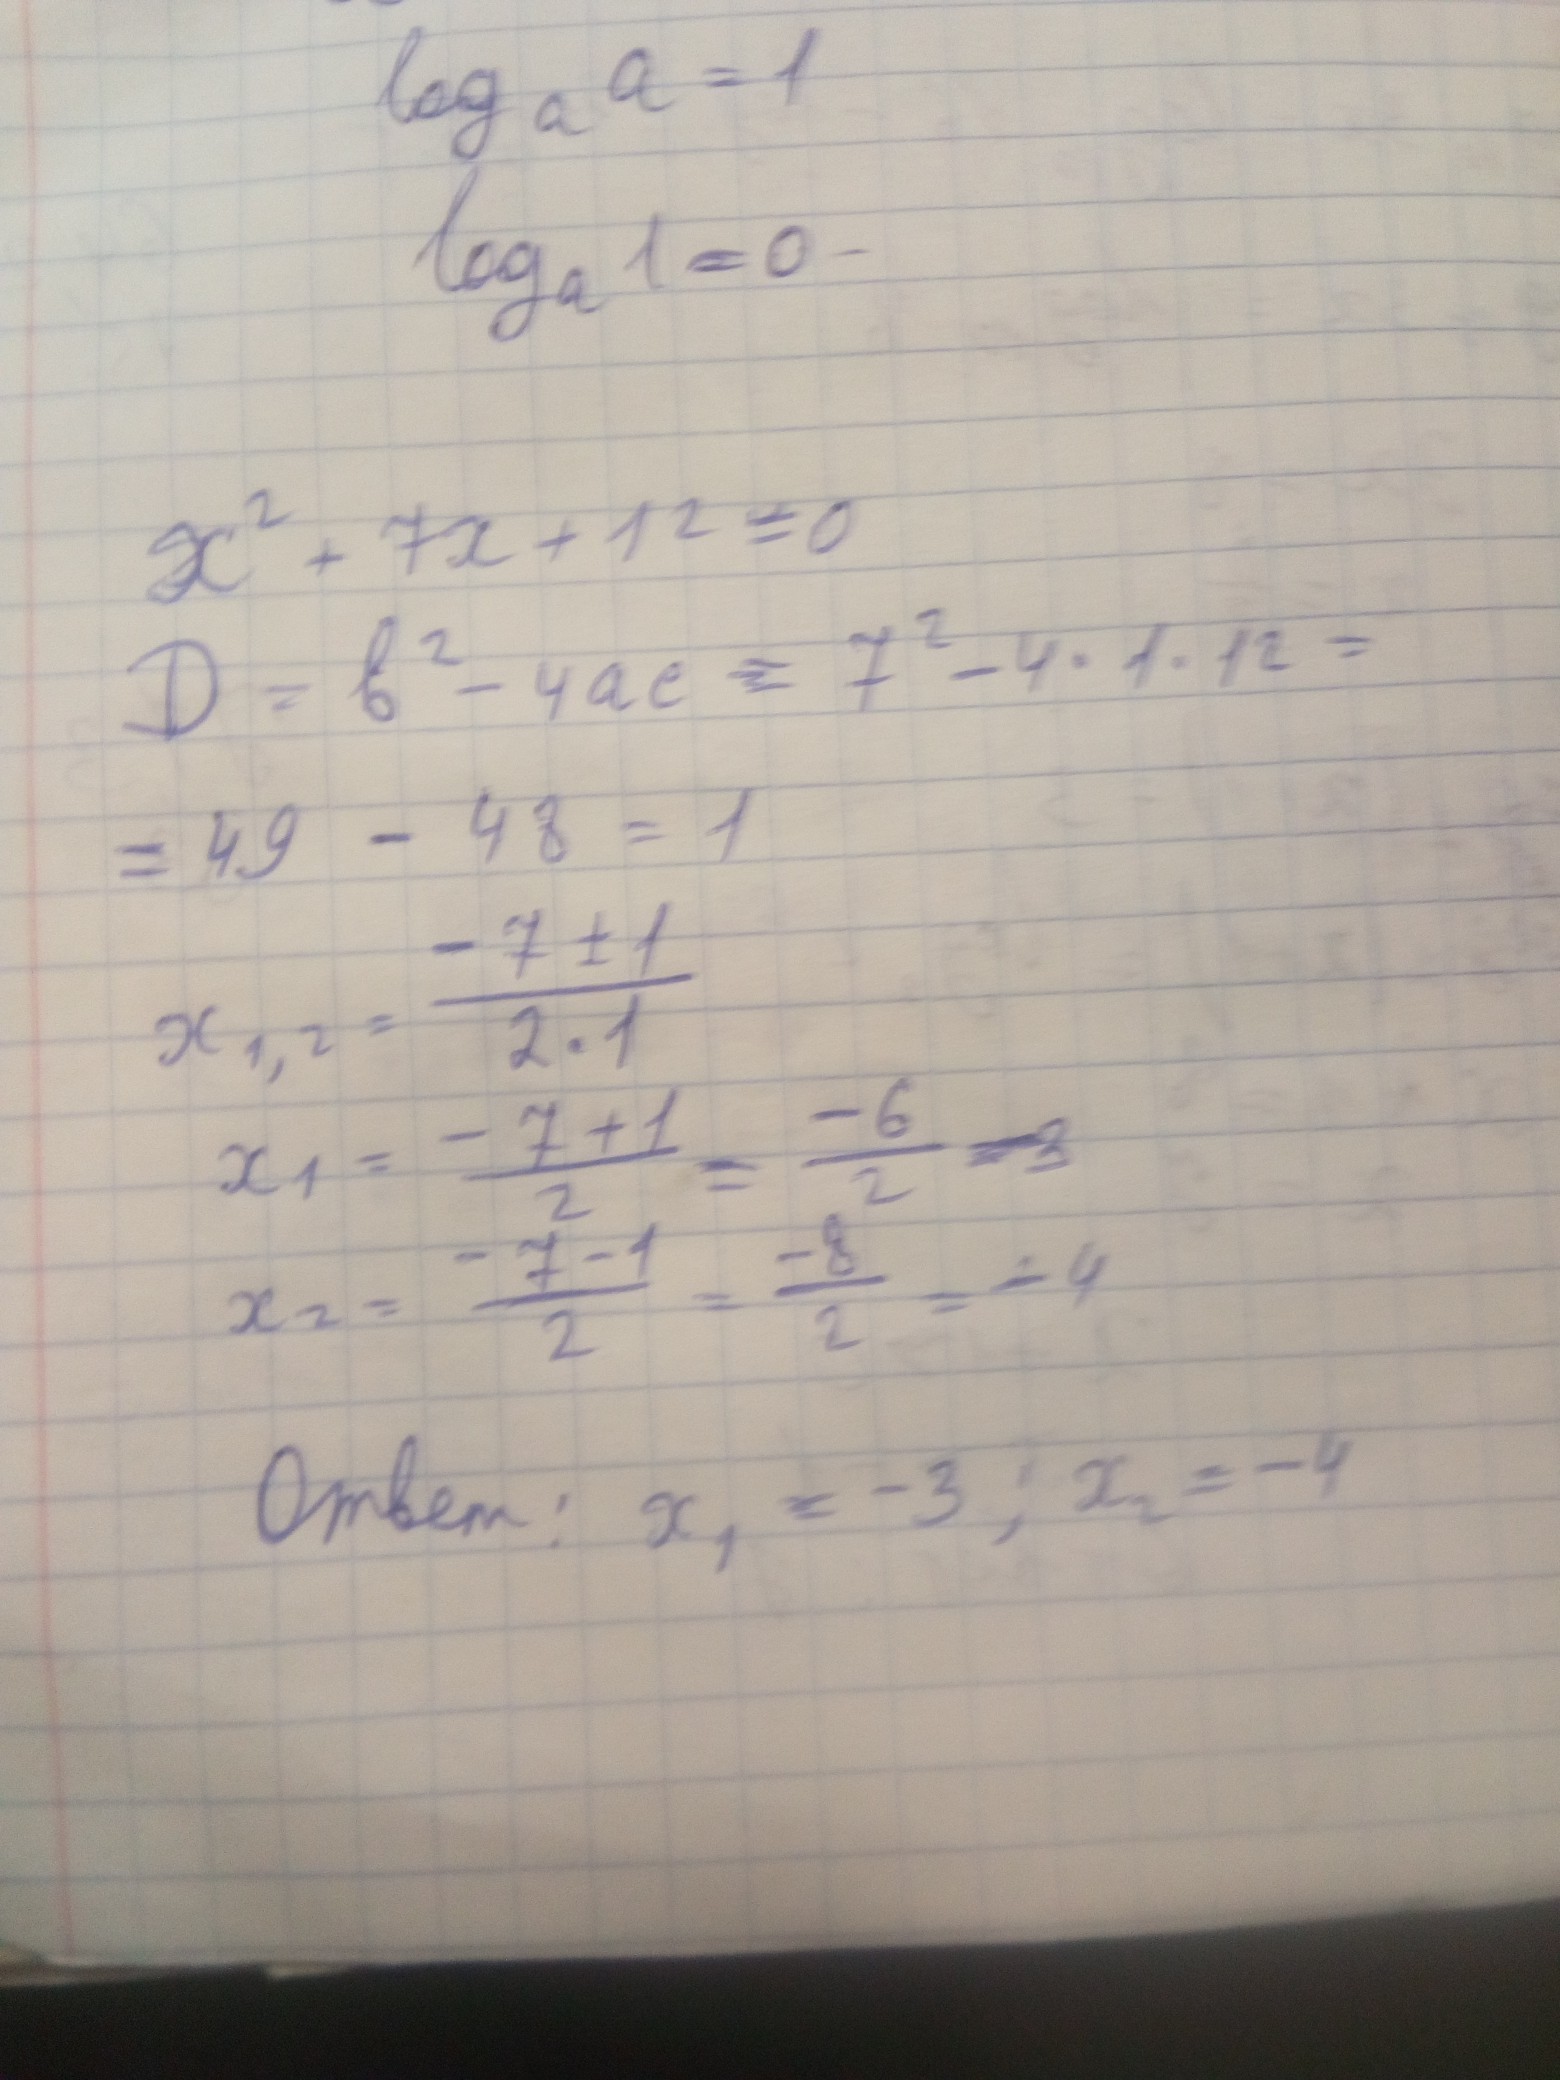 logₐ a = 1
logₐ 1 = 0 -
x² + 7x + 12 = 0
D = b² - 4ac = 7² - 4 · 1 · 12 =
= 49 - 48 = 1
x₁,₂ = (-7 ± 1)/(2 · 1)
x₁ = (-7 + 1)/2 = (-6)/2 = -3
x₂ = (-7 - 1)/2 = (-8)/2 = -4
Ответ: x₁ = -3 ; x₂ = -4